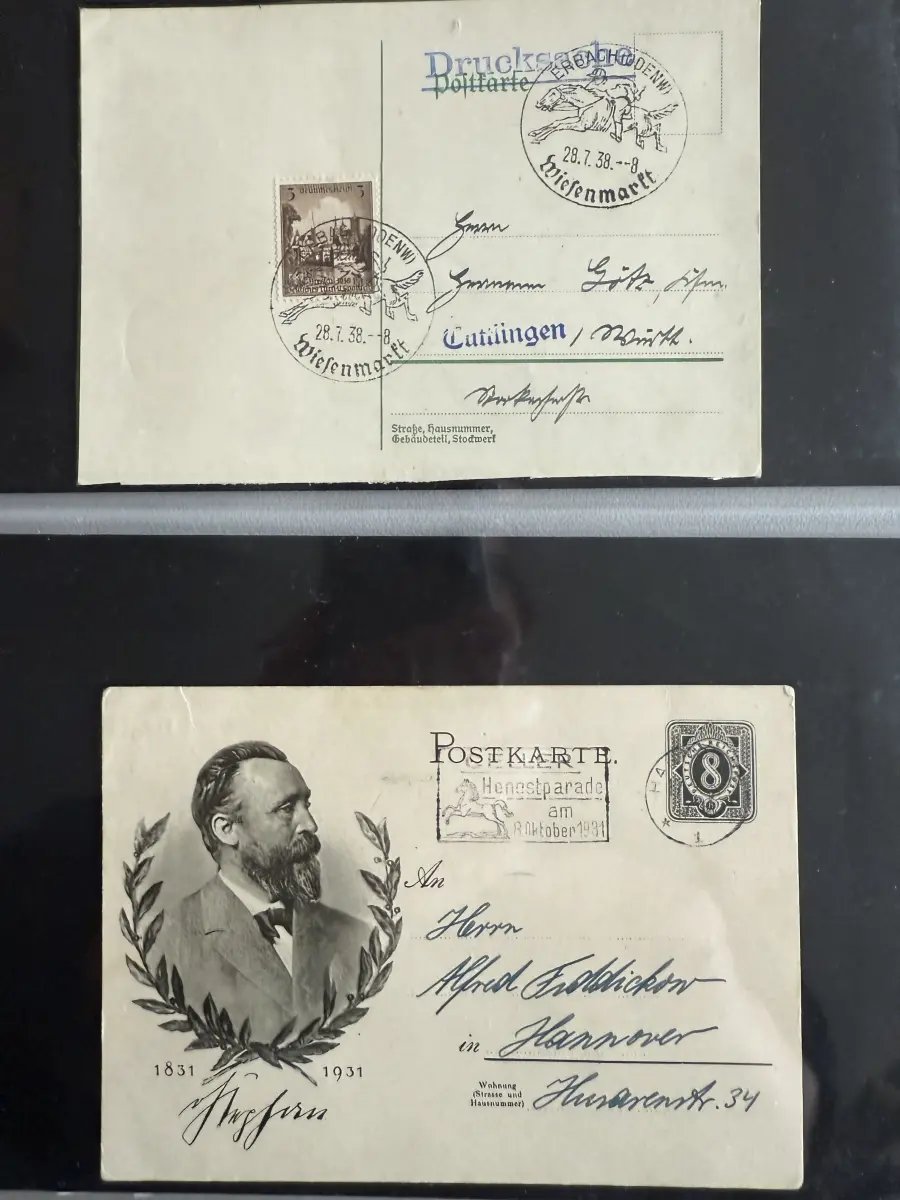 Drucksache
Postkarte
ERBACH (ODENW)
28.7.38.--8
Wiesenmarkt
3 3
28.7.38.--8
Wiesenmarkt
Herrn
Hermann Götz,
Tuttlingen / Württ.
Straße, Hausnummer,
Gebäudeteil, Stockwerk
POSTKARTE.
CELLER
Hengstparade
am
8.Oktober 1931
8
HA
1
An
Herrn
Alfred Fiddickow
in Hannover
Wohnung
(Strasse und
Hausnummer)
Husarenstr. 34
1831 1931
Stephan